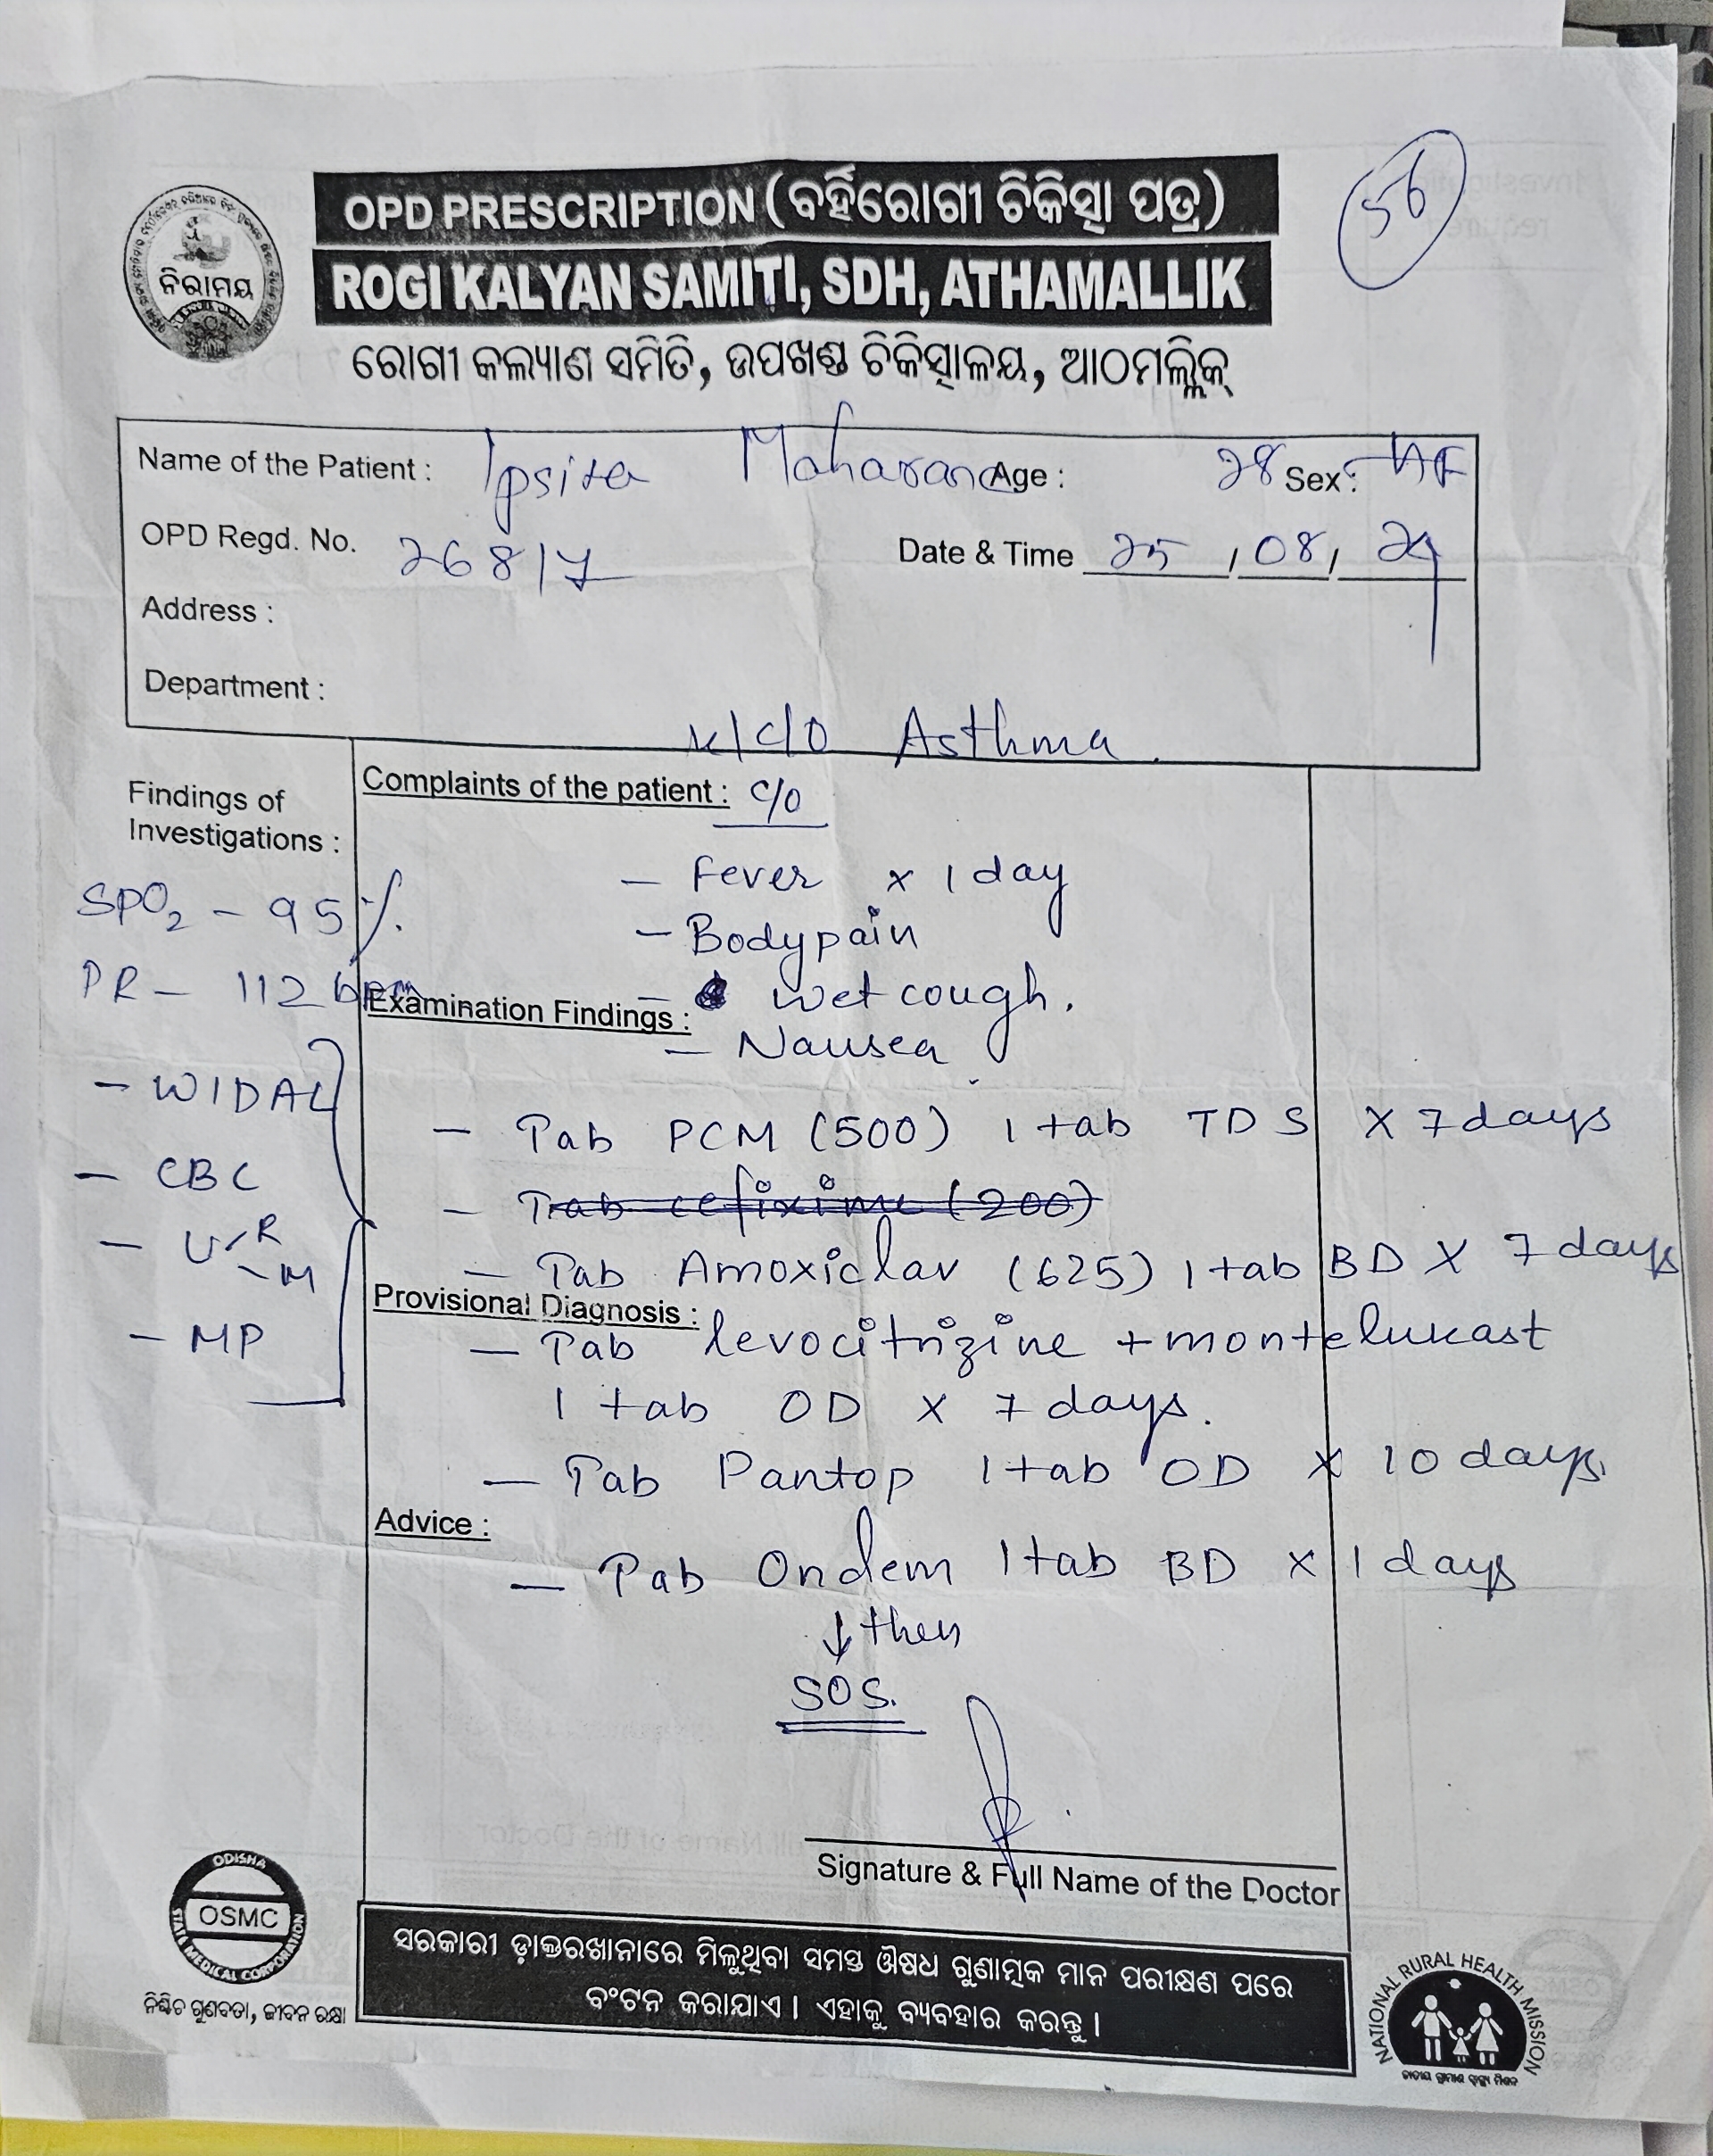 56
OPD PRESCRIPTION (ବର୍ହିରୋଗୀ ଚିକିତ୍ସା ପତ୍ର)
ନିରାମୟ
ROGI KALYAN SAMITI, SDH, ATHAMALLIK
ରୋଗୀ କଲ୍ୟାଣ ସମିତି, ଉପଖଣ୍ଡ ଚିକିତ୍ସାଳୟ, ଆଠମଲ୍ଲିକ୍
Name of the Patient : Ipsita Maharana Age : 28 Sex : F
OPD Regd. No. 26817 Date & Time 25 / 08 / 24
Address :
Department :
K/C/O Asthma
Findings of
Investigations :
SPO2 - 95%.
PR - 112 bpm
- WIDAL
- CBC
- U R M
- MP
Complaints of the patient : C/O
- Fever x 1 day
- Bodypain
- wet cough.
Examination Findings :
- Nausea
- Tab PCM (500) 1 tab TDS X 7 days
- Tab cefixime (200)
- Tab Amoxiclav (625) 1 tab BD X 7 days
Provisional Diagnosis :
- Tab levocitrizine + montelukast
1 tab OD x 7 days.
- Tab Pantop 1 tab OD x 10 days.
Advice :
- Tab Ondem 1 tab BD x 1 days
↓ then
SOS.
Signature & Full Name of the Doctor
ODISHA
OSMC
STATE MEDICAL CORPORATION
ନିଶ୍ଚିତ ଗୁଣବତା, ଜୀବନ ରକ୍ଷା
ସରକାରୀ ଡ଼ାକ୍ତରଖାନାରେ ମିଳୁଥିବା ସମସ୍ତ ଔଷଧ ଗୁଣାତ୍ମକ ମାନ ପରୀକ୍ଷଣ ପରେ
ବଂଟନ କରାଯାଏ । ଏହାକୁ ବ୍ୟବହାର କରନ୍ତୁ ।
NATIONAL RURAL HEALTH MISSION
ଜାତୀୟ ଗ୍ରାମୀଣ ସ୍ୱାସ୍ଥ୍ୟ ମିଶନ